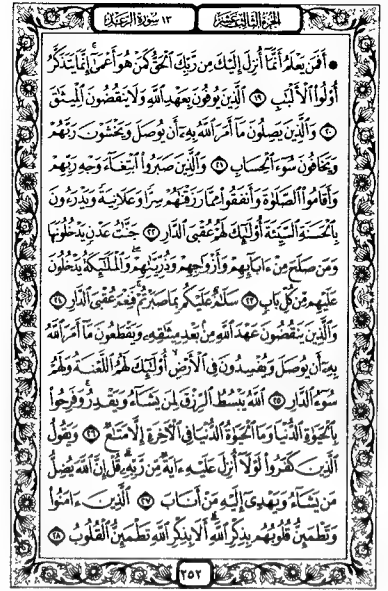 الجزء الثالث عشر ١٣ سورة الرعد
۞ أَفَمَن يَعْلَمُ أَنَّمَآ أُنزِلَ إِلَيْكَ مِن رَّبِّكَ ٱلْحَقُّ كَمَنْ هُوَ أَعْمَىٰٓ ۚ إِنَّمَا يَتَذَكَّرُ
أُو۟لُوا۟ ٱلْأَلْبَٰبِ ١٩ ٱلَّذِينَ يُوفُونَ بِعَهْدِ ٱللَّهِ وَلَا يَنقُضُونَ ٱلْمِيثَٰقَ
٢٠ وَٱلَّذِينَ يَصِلُونَ مَآ أَمَرَ ٱللَّهُ بِهِۦٓ أَن يُوصَلَ وَيَخْشَوْنَ رَبَّهُمْ
وَيَخَافُونَ سُوٓءَ ٱلْحِسَابِ ٢١ وَٱلَّذِينَ صَبَرُوا۟ ٱبْتِغَآءَ وَجْهِ رَبِّهِمْ
وَأَقَامُوا۟ ٱلصَّلَوٰةَ وَأَنفَقُوا۟ مِمَّا رَزَقْنَٰهُمْ سِرًّا وَعَلَانِيَةً وَيَدْرَءُونَ
بِٱلْحَسَنَةِ ٱلسَّيِّئَةَ أُو۟لَٰٓئِكَ لَهُمْ عُقْبَى ٱلدَّارِ ٢٢ جَنَّٰتُ عَدْنٍ يَدْخُلُونَهَا
وَمَن صَلَحَ مِنْ ءَابَآئِهِمْ وَأَزْوَٰجِهِمْ وَذُرِّيَّٰتِهِمْ ۖ وَٱلْمَلَٰٓئِكَةُ يَدْخُلُونَ
عَلَيْهِم مِّن كُلِّ بَابٍ ٢٣ سَلَٰمٌ عَلَيْكُم بِمَا صَبَرْتُمْ ۚ فَنِعْمَ عُقْبَى ٱلدَّارِ ٢٤
وَٱلَّذِينَ يَنقُضُونَ عَهْدَ ٱللَّهِ مِنۢ بَعْدِ مِيثَٰقِهِۦ وَيَقْطَعُونَ مَآ أَمَرَ ٱللَّهُ
بِهِۦٓ أَن يُوصَلَ وَيُفْسِدُونَ فِى ٱلْأَرْضِ ۙ أُو۟لَٰٓئِكَ لَهُمُ ٱللَّعْنَةُ وَلَهُمْ
سُوٓءُ ٱلدَّارِ ٢٥ ٱللَّهُ يَبْسُطُ ٱلرِّزْقَ لِمَن يَشَآءُ وَيَقْدِرُ ۚ وَفَرِحُوا۟
بِٱلْحَيَوٰةِ ٱلدُّنْيَا وَمَا ٱلْحَيَوٰةُ ٱلدُّنْيَا فِى ٱلْءَاخِرَةِ إِلَّا مَتَٰعٌ ٢٦ وَيَقُولُ
ٱلَّذِينَ كَفَرُوا۟ لَوْلَآ أُنزِلَ عَلَيْهِ ءَايَةٌ مِّن رَّبِّهِۦ ۗ قُلْ إِنَّ ٱللَّهَ يُضِلُّ
مَن يَشَآءُ وَيَهْدِىٓ إِلَيْهِ مَنْ أَنَابَ ٢٧ ٱلَّذِينَ ءَامَنُوا۟
وَتَطْمَئِنُّ قُلُوبُهُم بِذِكْرِ ٱللَّهِ ۗ أَلَا بِذِكْرِ ٱللَّهِ تَطْمَئِنُّ ٱلْقُلُوبُ ٢٨
٢٥٢